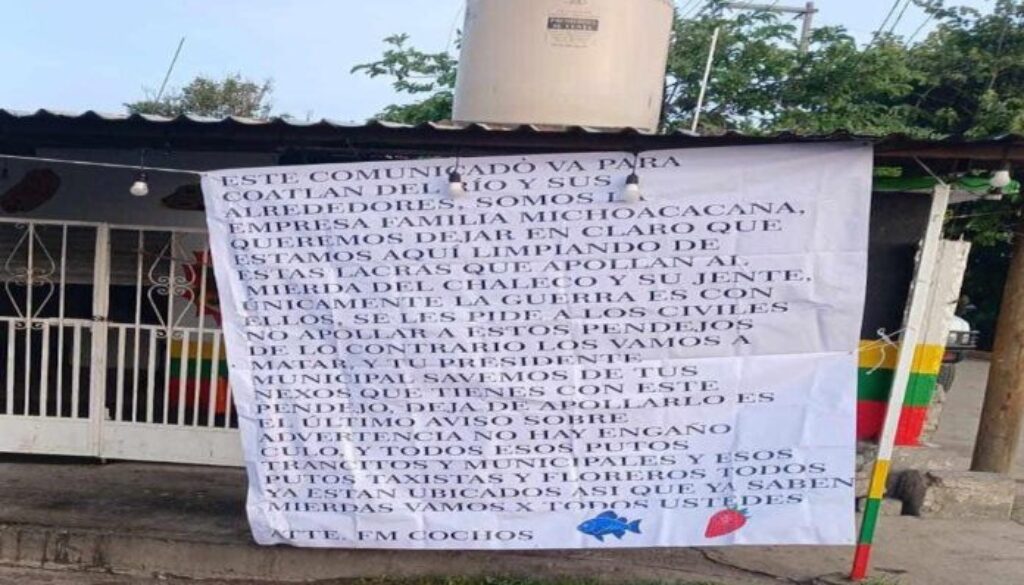 ESTE COMUNICADO VA PARA
COATLAN DEL RÍO Y SUS
ALREDEDORES, SOMOS
EMPRESA FAMILIA MICHOACACANA,
QUEREMOS DEJAR EN CLARO QUE
ESTAMOS AQUÍ LIMPIANDO DE
ESTAS LACRAS QUE APOLLAN AL
MIERDA DEL CHALECO Y SU JENTE,
ÚNICAMENTE LA GUERRA ES CON
ELLOS, SE LES PIDE A LOS CIVILES
NO APOLLAR A ESTOS PENDEJOS
DE LO CONTRARIO LOS VAMOS A
MATAR Y TU PRESIDENTE
MUNICIPAL SAVEMOS DE TUS
NEXOS QUE TIENES CON ESTE
PENDEJO, DEJA DE APOLLARLO ES
EL ÚLTIMO AVISO SOBRE
ADVERTENCIA NO HAY ENGAÑO
CULO, Y TODOS ESOS PUTOS
TRANCITOS Y MUNICIPALES Y ESOS
PUTOS TAXISTAS Y FLOREROS TODOS
YA ESTAN UBICADOS ASI QUE YA SABEN
MIERDAS VAMOS X TODOS USTEDES
ATTE. FM COCHOS